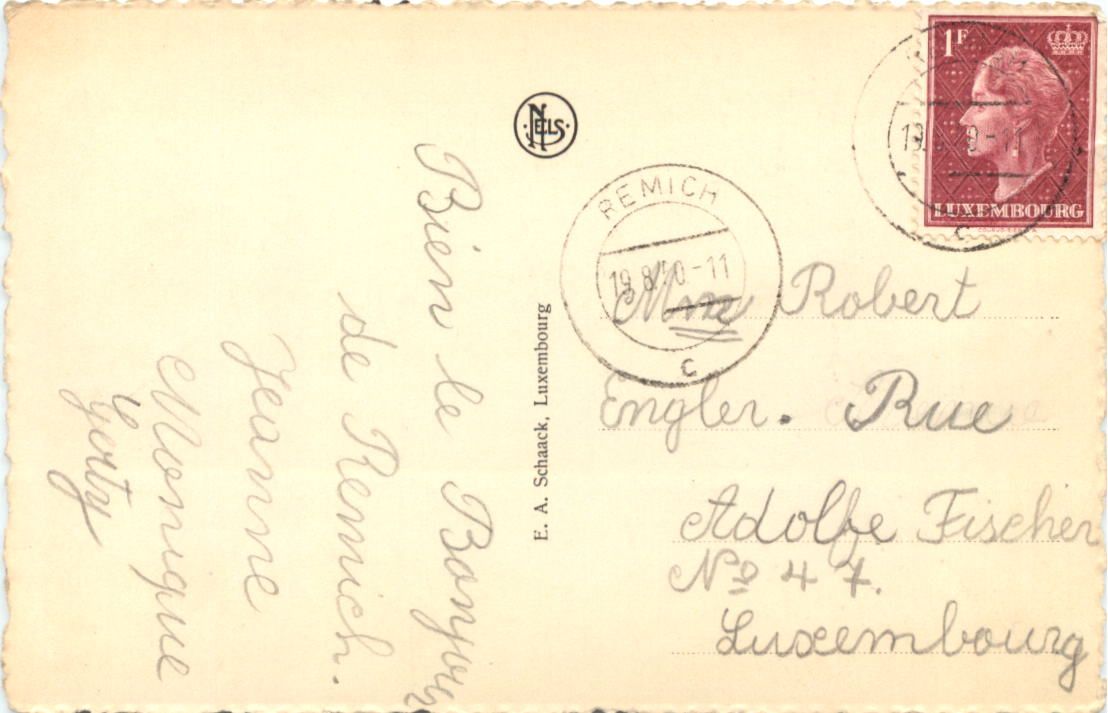 Bien le Bonjour
de Remich.
Jeanne
Monique
Gerty
NELS
E. A. Schaack, Luxembourg
REMICH
19.8.50-11
C
1F
LUXEMBOURG
C
Mme Robert
Engler. Rue
Adolfe Fischer
No 47.
Luxembourg